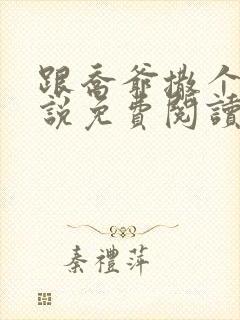 跟喬爺撒个
說免費閱讀
秦禮萍